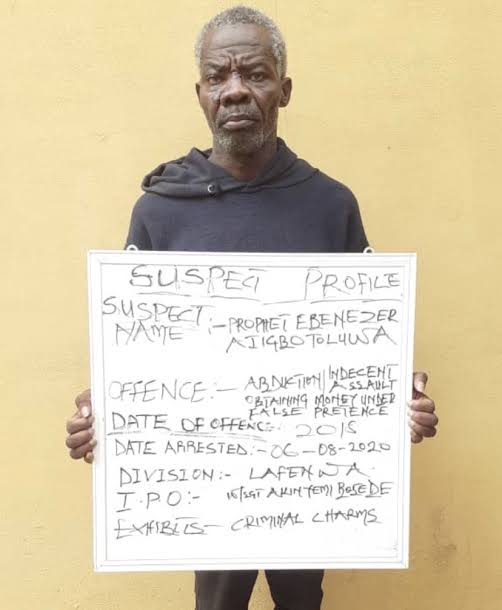 SUSPECT PROFILE
SUSPECT NAME :- PROPHET EBENEZER
AJIGBOTOLUWA
OFFENCE:- ABDUCTION/INDECENT
ASSAULT
OBTAINING MONEY UNDER
FALSE PRETENCE
DATE OF OFFENCE:- 2015
DATE ARRESTED:- 06-08-2020
DIVISION:- LAFENWA
I.P.O:- AKINYEMI BOSEDE
EXHIBITS- CRIMINAL CHARMS